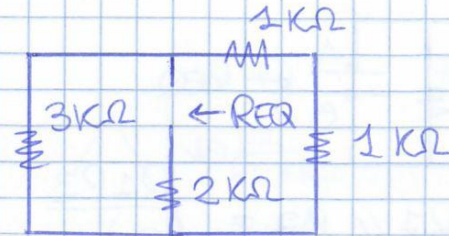 1KΩ
3KΩ
←REQ
1KΩ
2KΩ